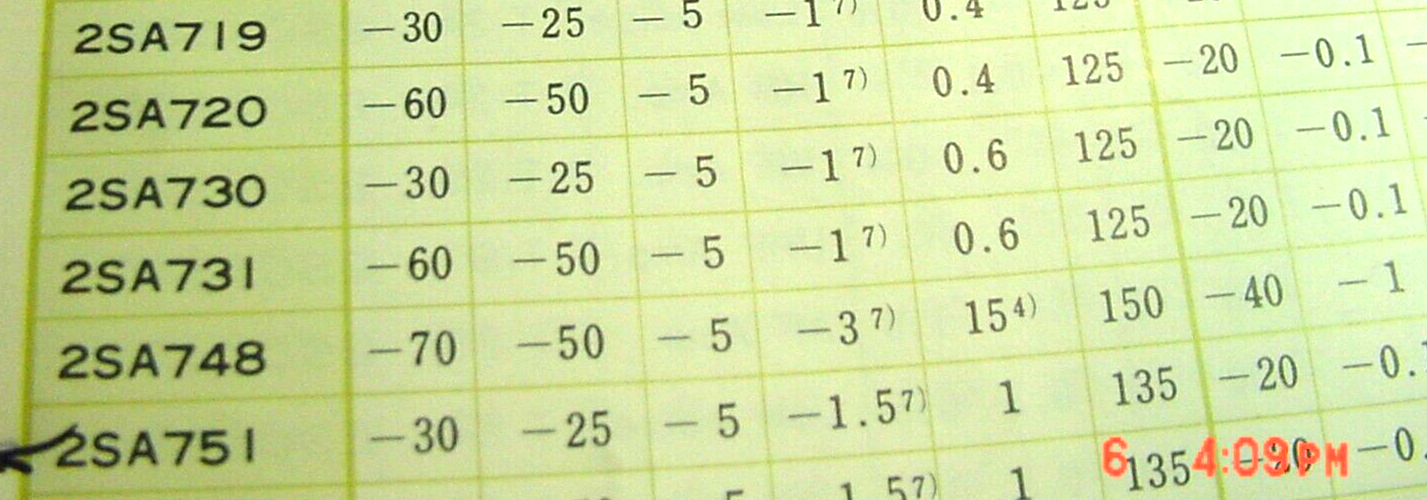 2SA719 −30 −25 − 5 −1 7) 0.4 125
2SA720 −60 −50 − 5 −1 7) 0.4 125 −20 −0.1
2SA730 −30 −25 − 5 −1 7) 0.6 125 −20 −0.1
2SA731 −60 −50 − 5 −1 7) 0.6 125 −20 −0.1
2SA748 −70 −50 − 5 −3 7) 15 4) 150 −40 − 1
2SA751 −30 −25 − 5 −1.5 7) 1 135 −20 −0.1
1 135 −20 −0.
6 4:09PM